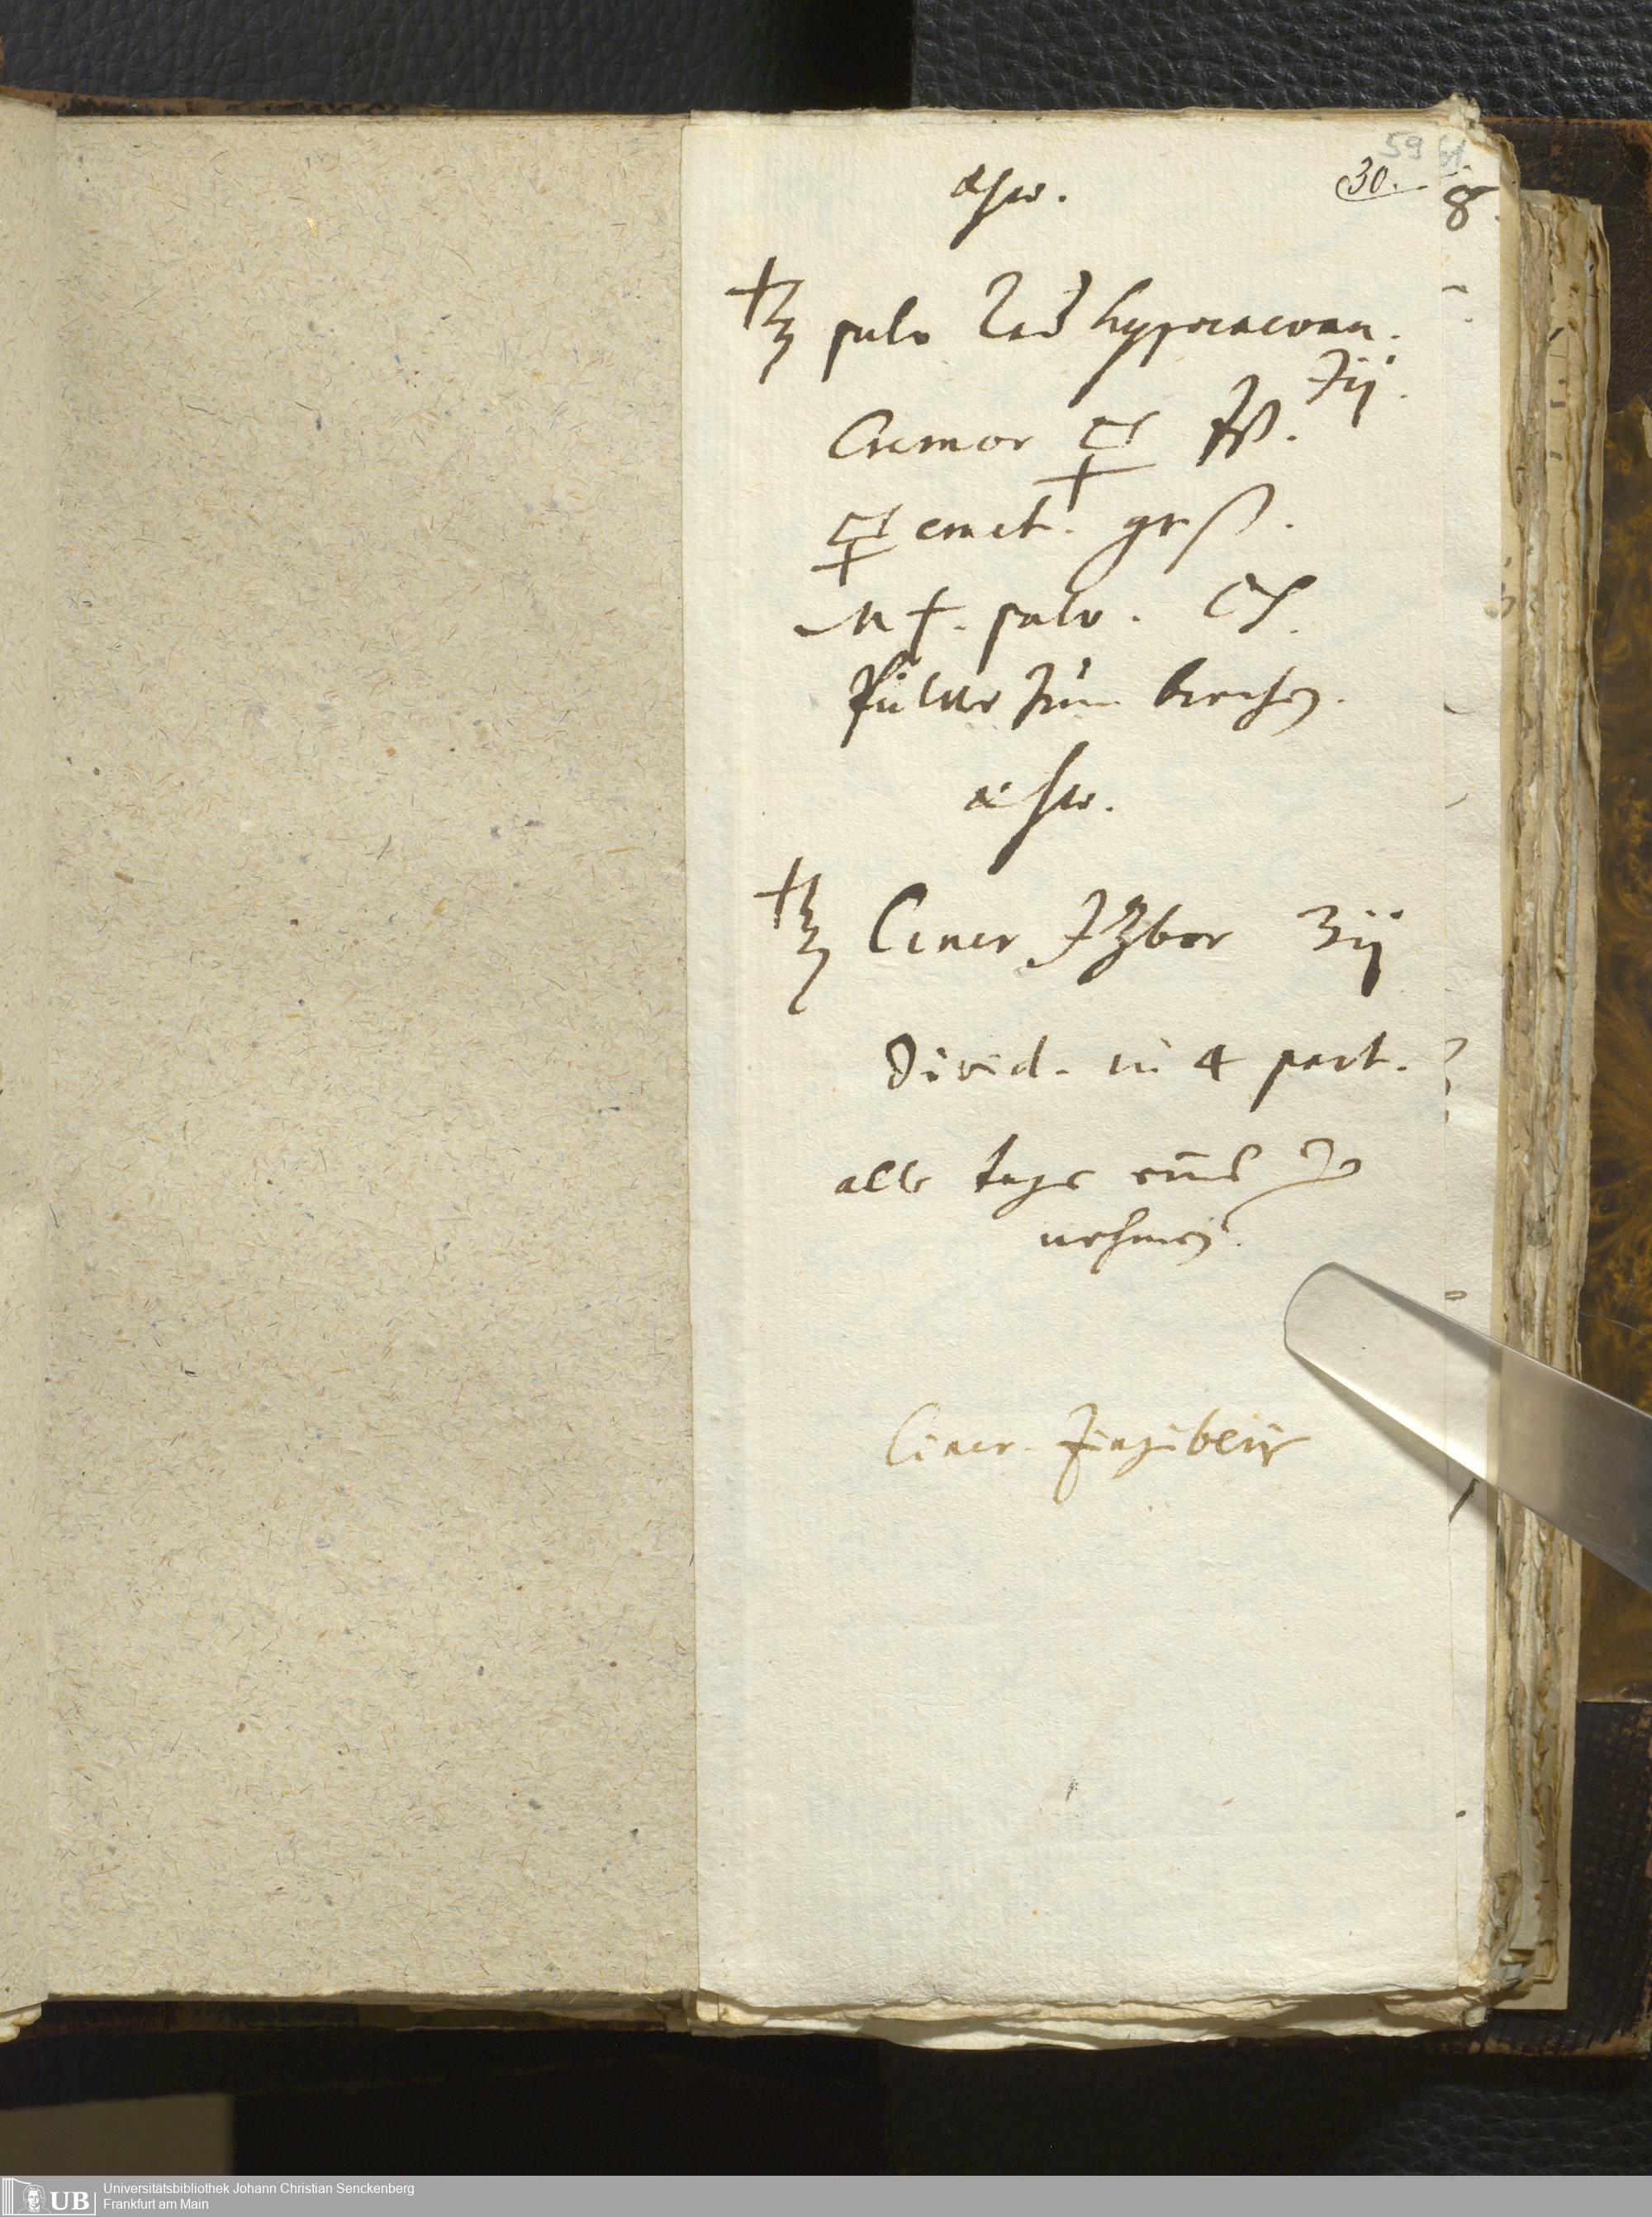 59 61
30. 8
pulv Rad hypecacoan.
℈ij.
Cremor 🜿 ʒß.
🜿 emet. gr ß.
M f. pulv. CS.
Pulver zum brechen.
Ciner Zzber ʒij
Divid. in 4 part.
alle tage eins zu
nehmen.
Ciner. Zingiberis
UB Universitätsbibliothek Johann Christian Senckenberg
Frankfurt am Main